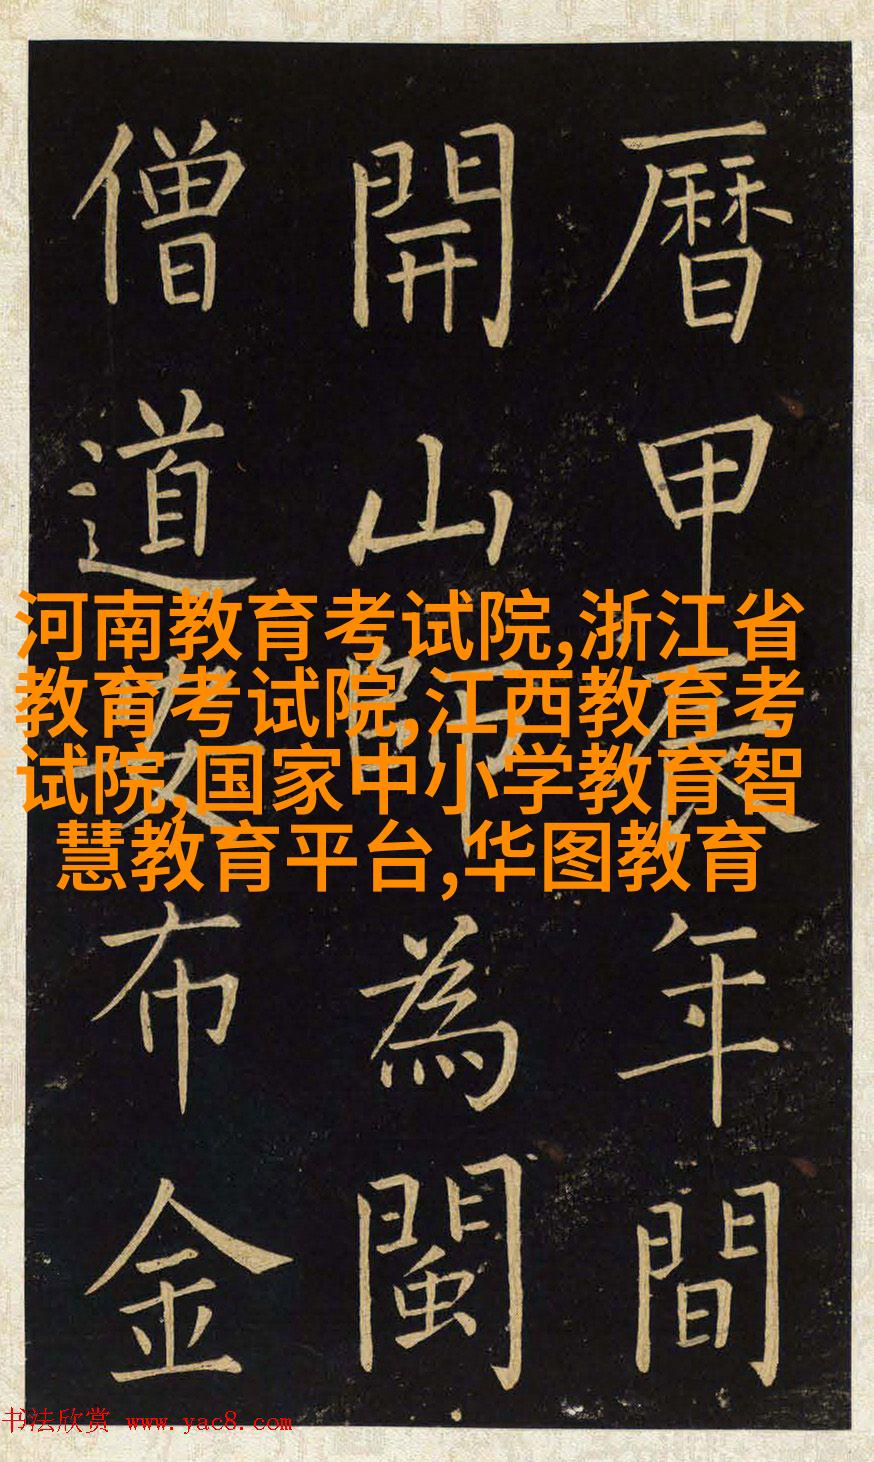 暦甲辰年間
開山師為閩
僧道安布金
河南教育考试院,浙江省
教育考试院,江西教育考
试院,国家中小学教育智
慧教育平台,华图教育
书法欣赏 www.yac8.com